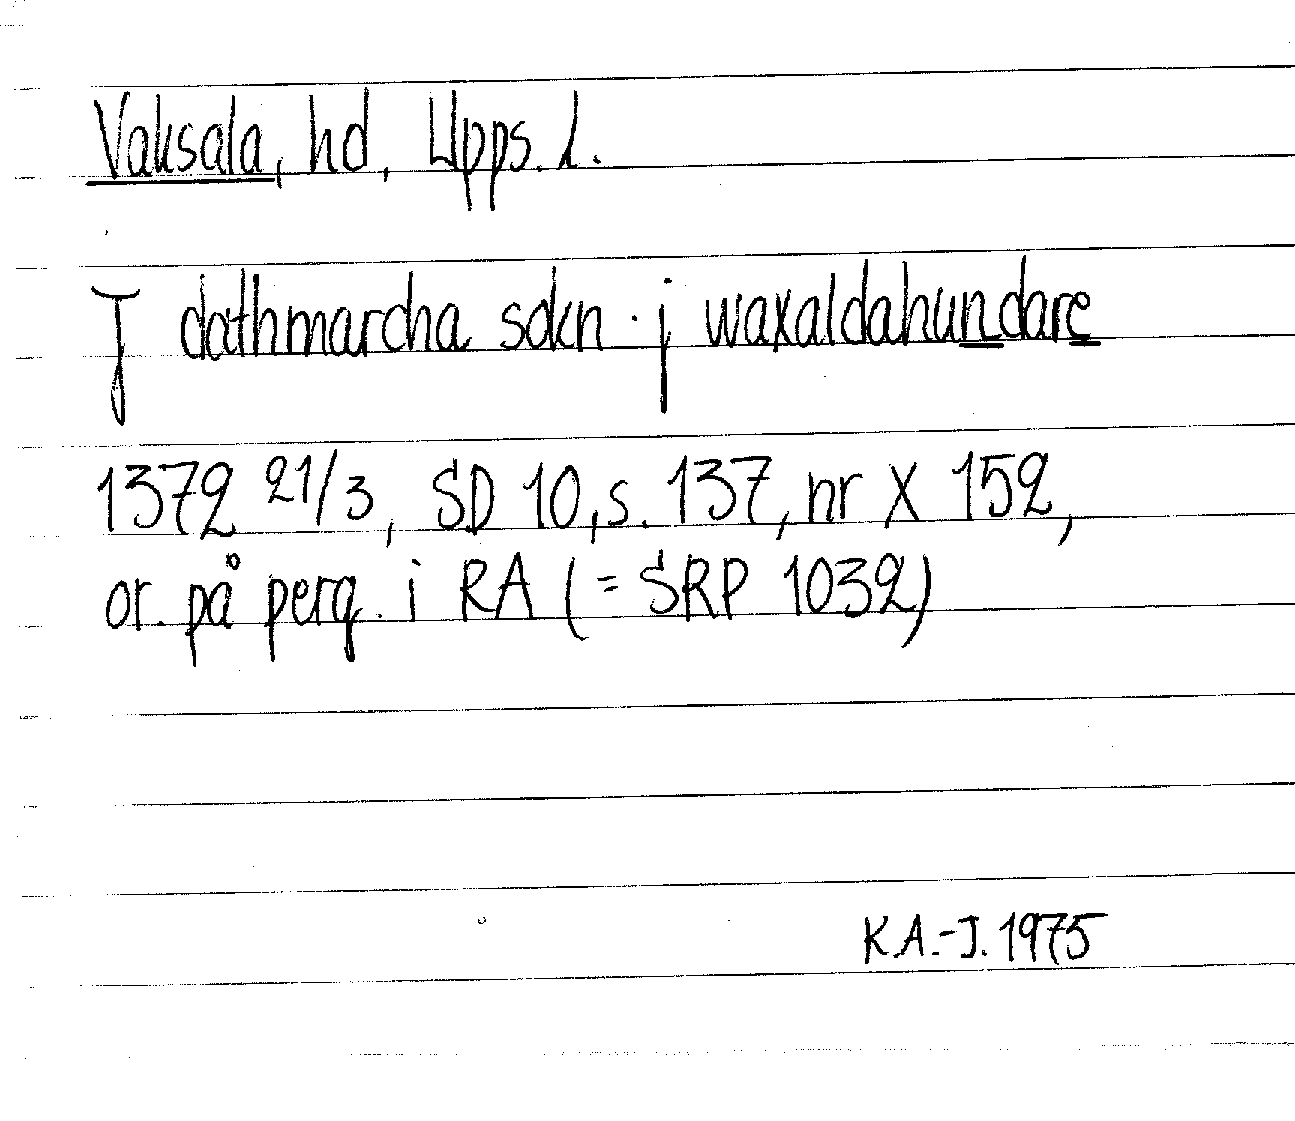 Vaksala, hd, Upps. l.
J dathmarcha sokn · j waxaldahundare
1372 21/3, SD 10, s. 137, nr X 152,
or. på perg. i RA (= SRP 1032)
K.A.-J. 1975